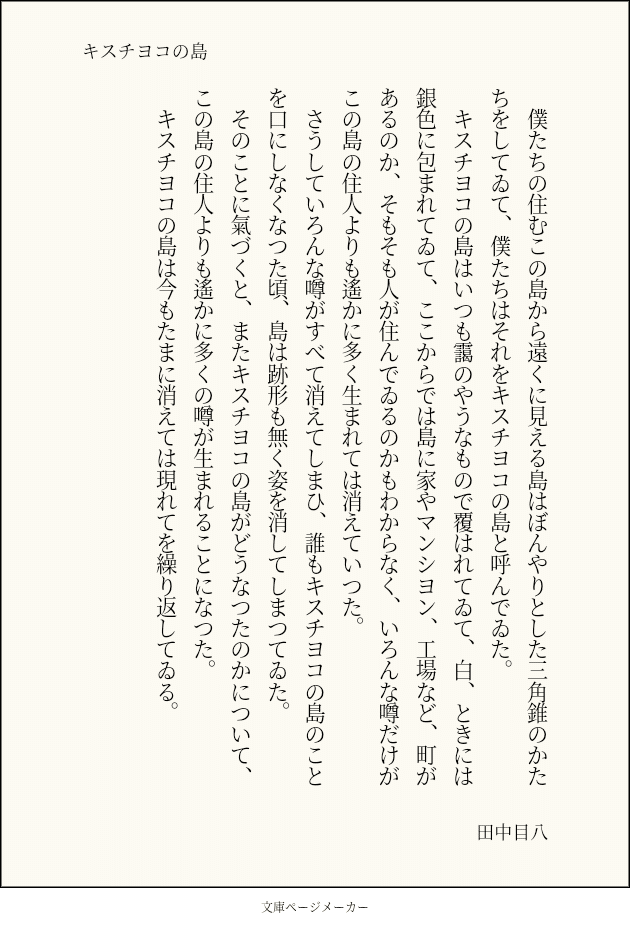 キスチヨコの島
　僕たちの住むこの島から遠くに見える島はぼんやりとした三角錐のかた
ちをしてゐて、僕たちはそれをキスチヨコの島と呼んでゐた。
　キスチヨコの島はいつも靄のやうなもので覆はれてゐて、白、ときには
銀色に包まれてゐて、ここからでは島に家やマンシヨン、工場など、町が
あるのか、そもそも人が住んでゐるのかもわからなく、いろんな噂だけが
この島の住人よりも遙かに多く生まれては消えていつた。
　さうしていろんな噂がすべて消えてしまひ、誰もキスチヨコの島のこと
を口にしなくなつた頃、島は跡形も無く姿を消してしまつてゐた。
　そのことに氣づくと、またキスチヨコの島がどうなつたのかについて、
この島の住人よりも遙かに多くの噂が生まれることになつた。
　キスチヨコの島は今もたまに消えては現れてを繰り返してゐる。
田中目八
文庫ページメーカー